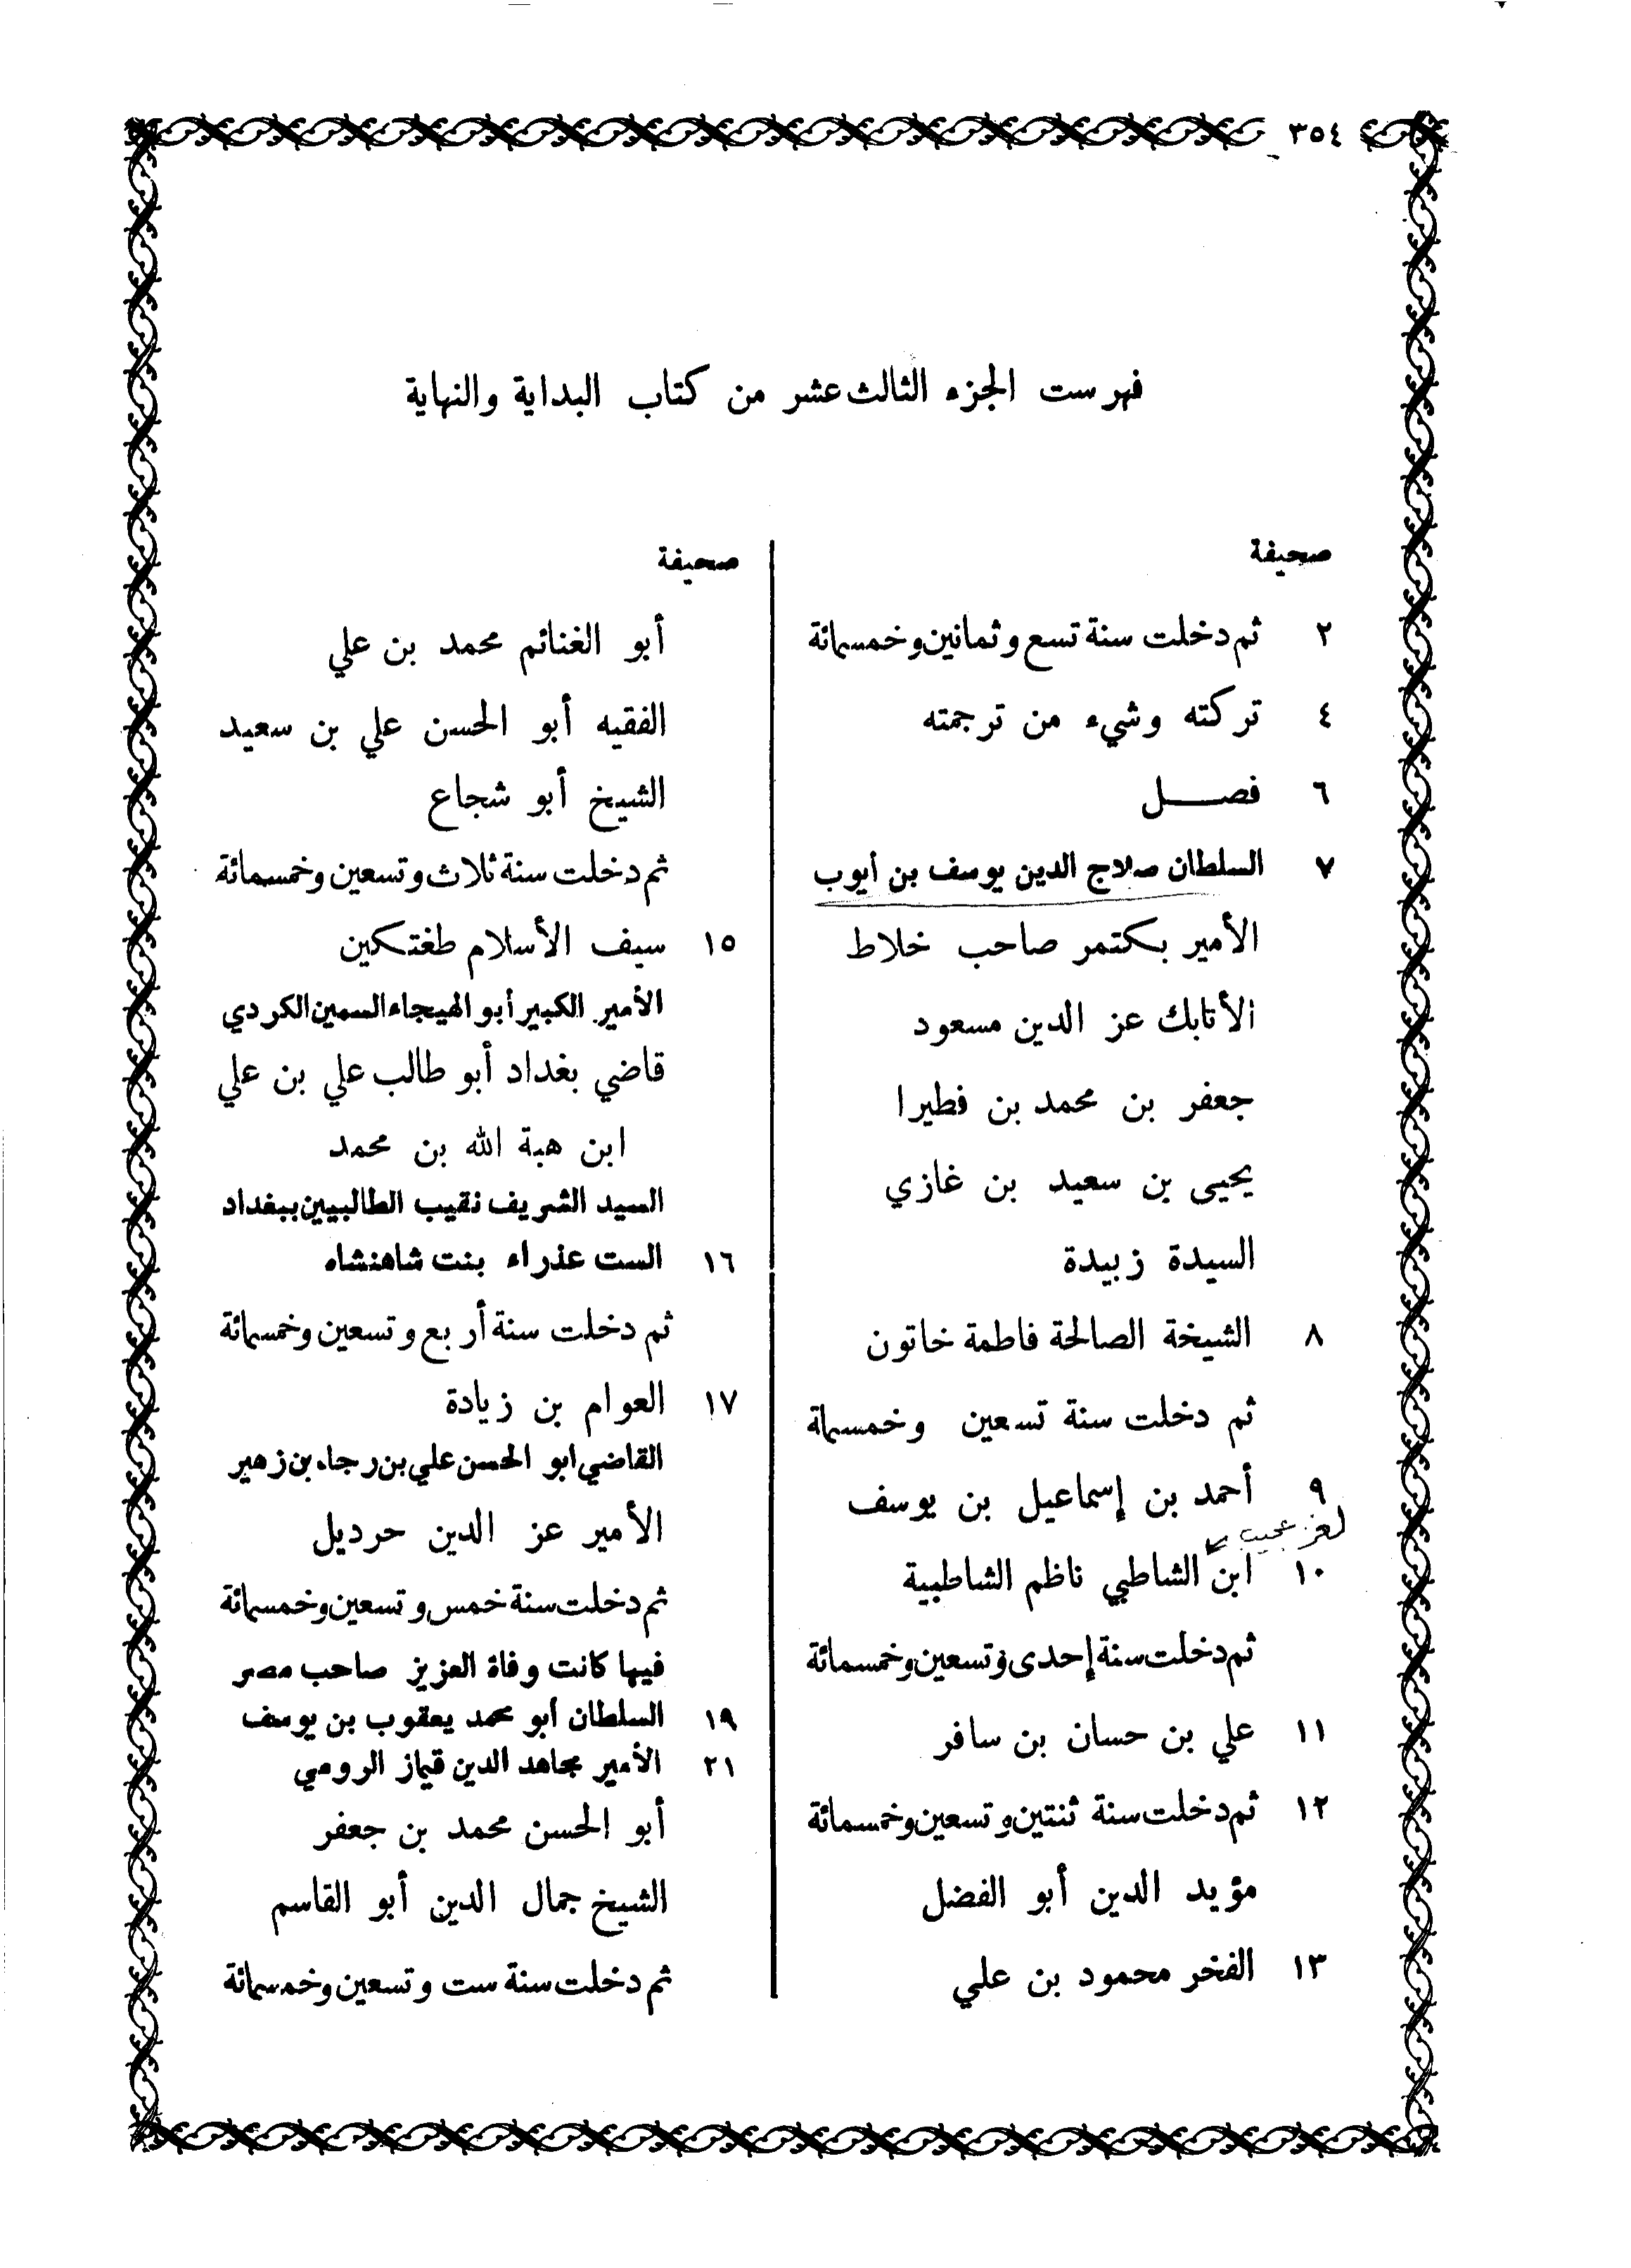 ٣٥٤
فهرست الجزء الثالث عشر من كتاب البداية والنهاية
صحيفة
٢ ثم دخلت سنة تسع وثمانين وخمسمائة
٤ تركته وشيء من ترجمته
٦ فصـــل
٧ السلطان صلاح الدين يوسف بن أيوب
الأمير بكتمر صاحب خلاط
الأتابك عز الدين مسعود
جعفر بن محمد بن فطيرا
يحيى بن سعيد بن غازي
السيدة زبيدة
٨ الشيخة الصالحة فاطمة خاتون
ثم دخلت سنة تسعين وخمسمائة
٩ أحمد بن إسماعيل بن يوسف
لغز عجيب
١٠ ابن الشاطبي ناظم الشاطبية
ثم دخلت سنة إحدى وتسعين وخمسمائة
١١ علي بن حسان بن سافر
١٢ ثم دخلت سنة ثنتين وتسعين وخمسمائة
مؤيد الدين أبو الفضل
١٣ الفخر محمود بن علي
صحيفة
أبو الغنائم محمد بن علي
الفقيه أبو الحسن علي بن سعيد
الشيخ أبو شجاع
ثم دخلت سنة ثلاث وتسعين وخمسمائة
١٥ سيف الأسلام طغتكين
الأمير الكبير أبو الهيجاء السمين الكردي
قاضي بغداد أبو طالب علي بن علي
ابن هبة الله بن محمد
السيد الشريف نقيب الطالبيين ببغداد
١٦ الست عذراء بنت شاهنشاه
ثم دخلت سنة أربع وتسعين وخمسمائة
١٧ العوام بن زيادة
القاضي ابو الحسن علي بن رجاء بن زهير
الأمير عز الدين حرديل
ثم دخلت سنة خمس وتسعين وخمسمائة
فيها كانت وفاة العزيز صاحب مصر
١٩ السلطان أبو محمد يعقوب بن يوسف
٢١ الأمير مجاهد الدين قيماز الرومي
أبو الحسن محمد بن جعفر
الشيخ جمال الدين أبو القاسم
ثم دخلت سنة ست وتسعين وخمسمائة